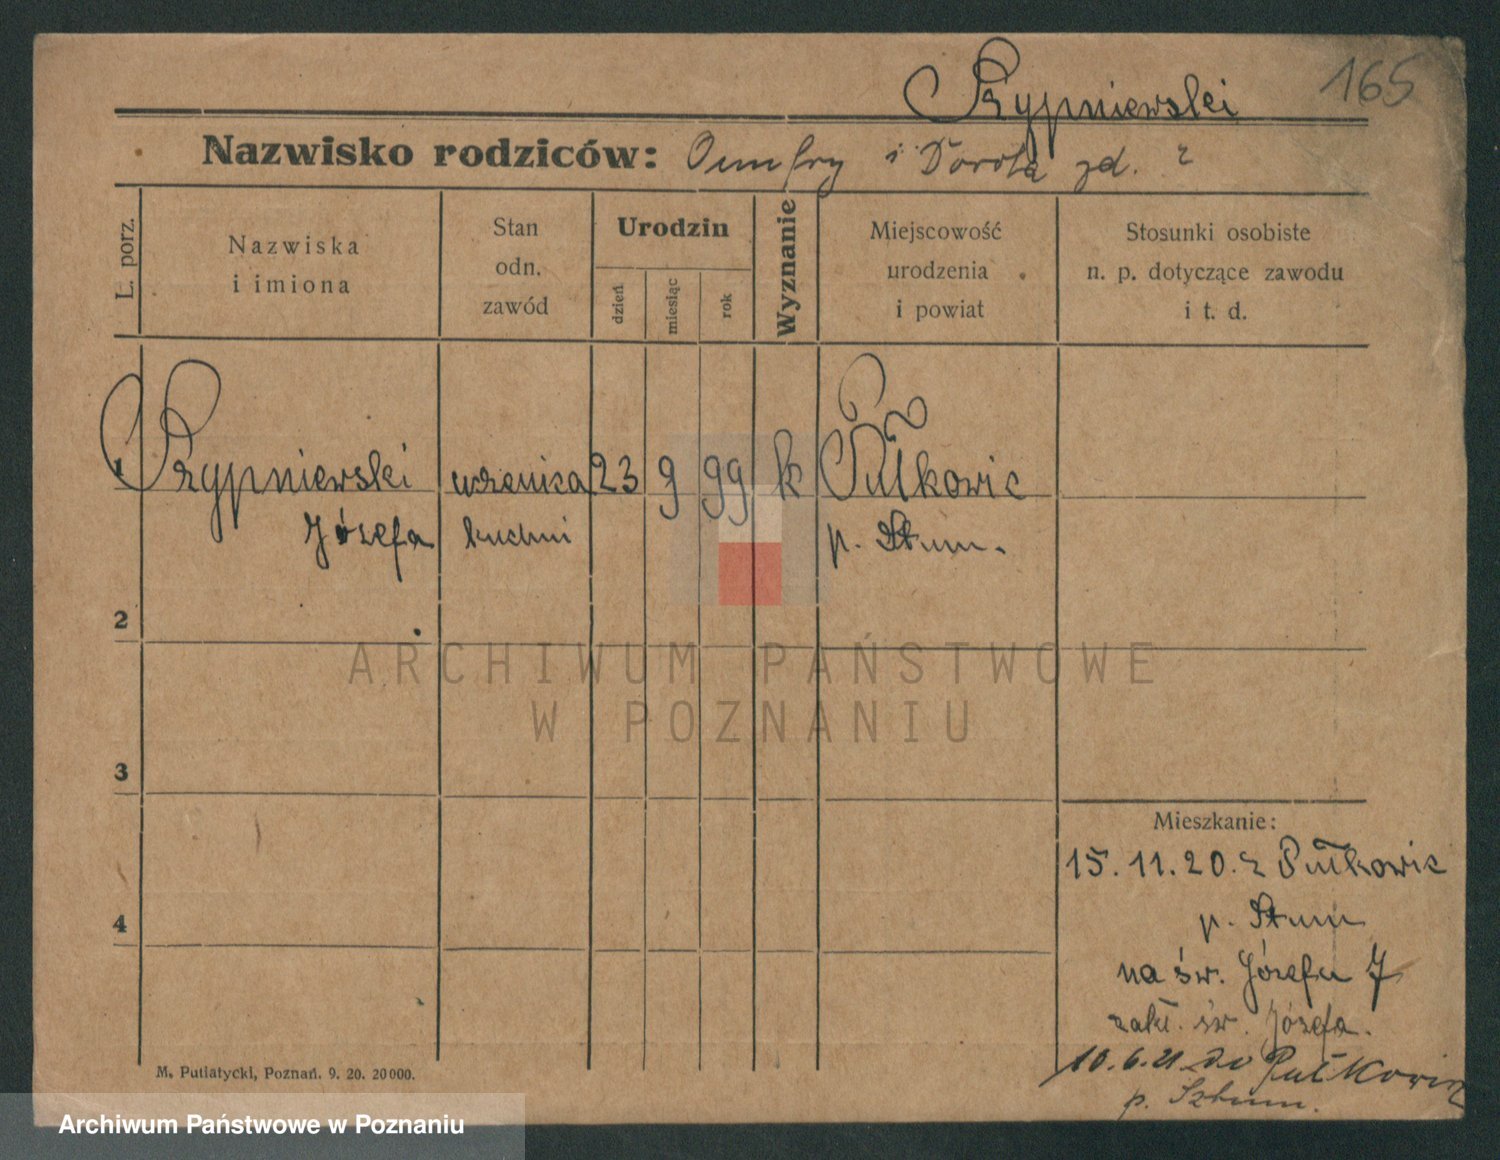 165
Rzypniewski
Nazwisko rodziców: Onufry i Dorota zd. ?
L. porz.
Nazwiska
i imiona
Stan
odn.
zawód
Urodzin
dzień
miesiąc
rok
Wyznanie
Miejscowość
urodzenia
i powiat
Stosunki osobiste
n. p. dotyczące zawodu
i t. d.
1 Rzypniewski uczenica 23 9 99 k Pułkowic
Józefa kuchni p. Sztum.
2
ARCHIWUM PAŃSTWOWE
W POZNANIU
3
Mieszkanie:
15.11.20. z Pułkowic
4
p. Sztum
na św. Józefa 7
zakł. św. Józefa.
10.6.21 do Pułkowic
p. Sztum.
M. Putiatycki, Poznań. 9. 20. 20000.
Archiwum Państwowe w Poznaniu